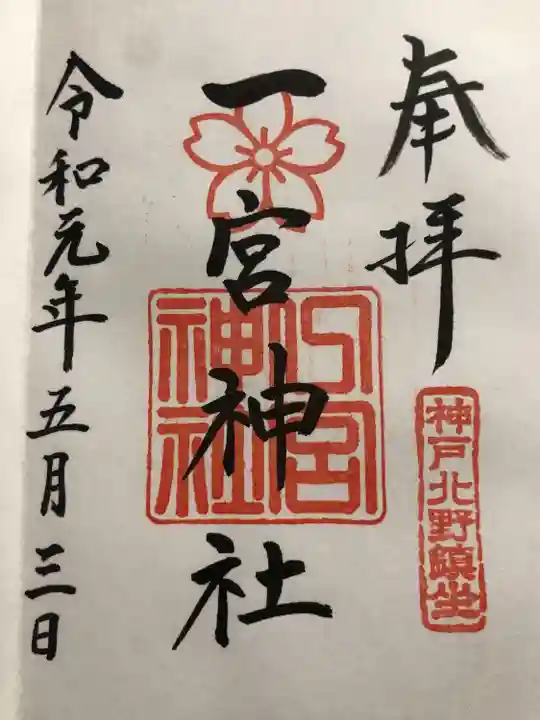 奉拝
神戸北野鎮坐
一宮神社
一宮神社
令和元年五月三日